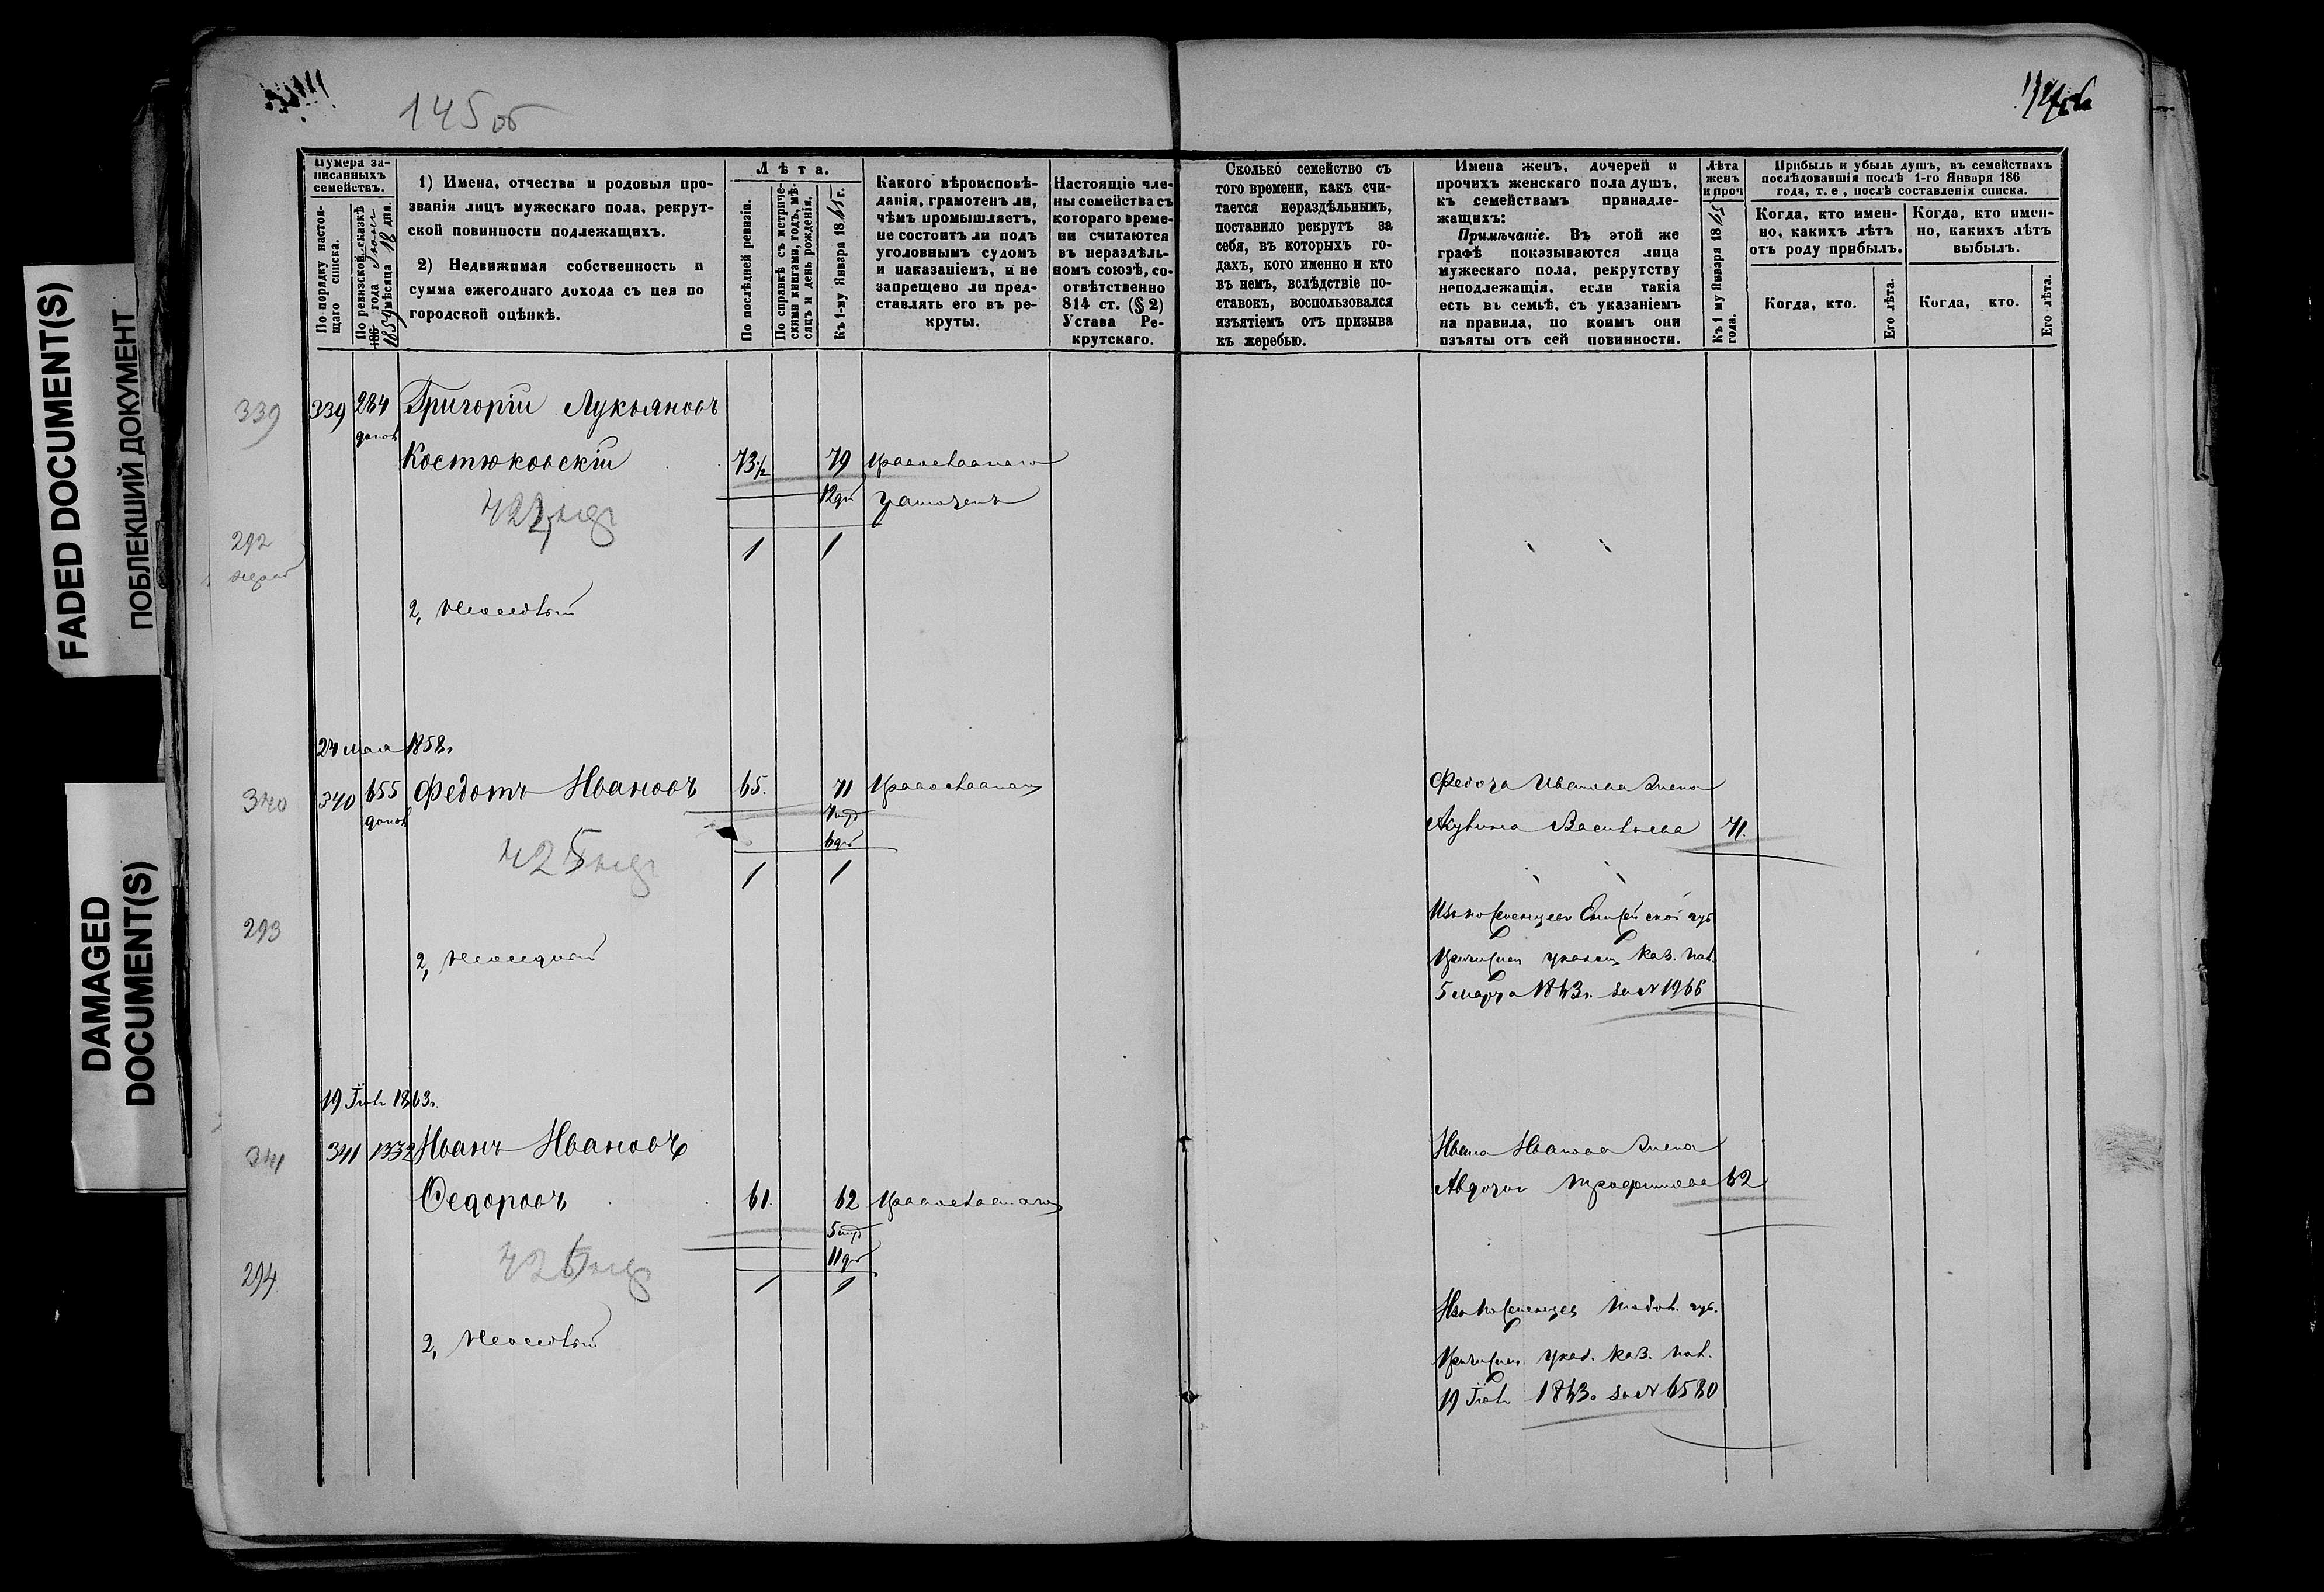 FADED DOCUMENT(S)
ПОБЛЕКШИЙ ДОКУМЕНТ
DAMAGED
DOCUMENT(S)
145 об
Нумера за-
писанныхъ
семействъ.
По порядку настоя-
щаго списка.
По ревизской сказкѣ
186 года Іюня
1859 мѣсяца 18 дня.
1) Имена, отчества и родовыя про-
званія лицъ мужескаго пола, рекрут-
ской повинности подлежащихъ.
2) Недвижимая собственность и
сумма ежегоднаго дохода съ нея по
городской оцѣнкѣ.
Лѣта.
По послѣдней ревизіи.
По справкѣ съ метриче-
скими книгами, годъ, мѣ-
сяцъ и день рожденія.
Къ 1-му Января 1865 г.
Какого вѣроисповѣ-
данія, грамотенъ ли,
чѣмъ промышляетъ,
не состоитъ ли подъ
уголовнымъ судомъ
и наказаніемъ, и не
запрещено ли пред-
ставлять его въ ре-
круты.
Настоящіе чле-
ны семейства съ
котораго време-
ни считаются
въ нераздѣль-
номъ союзѣ, со-
отвѣтственно
814 ст. (§ 2)
Устава Ре-
крутскаго.
Сколько семейство съ
того времени, какъ счи-
тается нераздѣльнымъ,
поставило рекрутъ за
себя, въ которыхъ го-
дахъ, кого именно и кто
въ немъ, вслѣдствіе по-
ставокъ, воспользовался
изъятіемъ отъ призыва
къ жеребью.
Имена женъ, дочерей и
прочихъ женскаго пола душъ,
къ семействамъ принадле-
жащихъ:
Примѣчаніе. Въ этой же
графѣ показываются лица
мужескаго пола, рекрутству
неподлежащія, если такія
есть въ семьѣ, съ указаніемъ
на правила, по коимъ они
изъяты отъ сей повинности.
Лѣта
женъ
и проч
Къ 1 му Января 18
года.
Прибыль и убыль душъ, въ семействахъ
послѣдовавшія послѣ 1-го Января 186
года, т. е, послѣ составленія списка.
Когда, кто имен-
но, какихъ лѣтъ
отъ роду прибылъ.
Когда, кто имен-
но, какихъ лѣтъ
выбылъ.
Когда, кто.
Его лѣта.
Когда, кто.
Его лѣта.
339 339 284 Григорій Лукьяновъ
допол
Костюковскій 73½ 79 Православнаго
грамотенъ
292
1 1
24 мая 1858г
340 340 655 Федотъ Ивановъ 65. 71 Православнаго
допол
1 1
293
Федота Иванова жена
Акулина Васильева 71.
Изъ поселенцевъ Енисейской губ
Причислен указомъ Каз. Пал.
5 марта 1843г. за № 1966
19 Іюля 1863г.
341 341 1332 Иванъ Ивановъ
Федоровъ 61. 62 Православнаго
1 1
294
Ивана Иванова жена
Авдотья Трофимова 62
Изъ поселенцевъ Тобол. губ.
Причислен. указ. Каз. Пал.
19 Іюля 1863г за № 6580